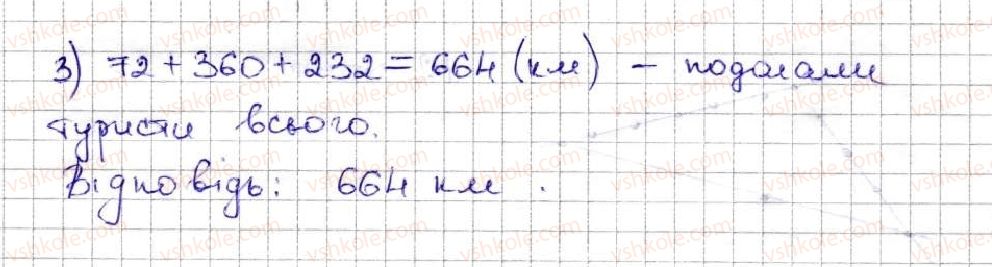 3) 72 + 360 + 232 = 664 (км) – подолали
туристи всього.
Відповідь: 664 км .